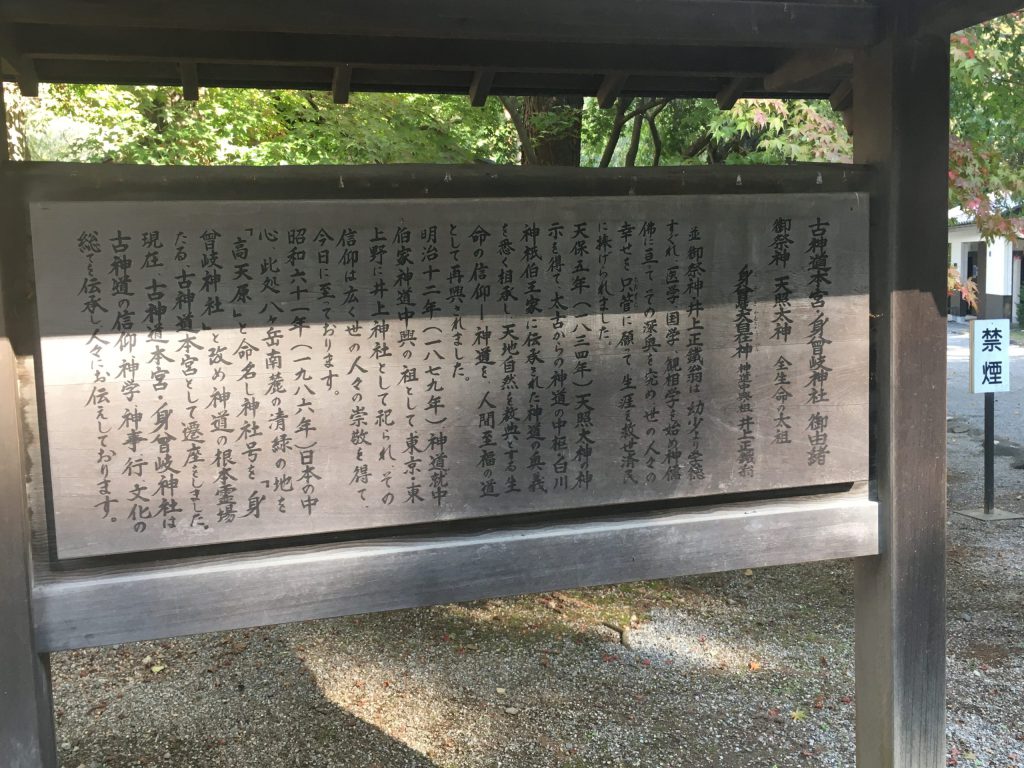 古神道本宮・身曾岐神社 御由緒
御祭神 天照太神 全生命の太祖
神 神道中興祖 井上正鐵翁
並 御祭神井上正鐵翁は 幼少より学徳
すぐれ 医学 国学 観相学を始め 神儒
佛に亘ってその深奥を究め 世の人々の
幸せを只管に願って 生涯を救世済民
に捧げられました。
天保五年(一八三四年)天照太神の神
示を得て、太古からの神道の中枢・白川
神祇伯王家に伝承された神道の奥義
を悉く相承し、天地自然を教典とする 生
命の信仰―神道を、人間至福の道
として再興されました。
明治十二年(一八七九年)神道就中
伯家神道中興の祖として 東京・東
上野に井上神社として祀られ その
信仰は広く世の人々の崇敬を得て、
今日に至っております。
昭和六十一年(一九八六年)日本の中
心 此処八ヶ岳南麓の清緑の地を
「高天原」と命名し 神社号を「身
曾岐神社」と改め 神道の根本霊場
たる 古神道本宮として遷座をしました。
現在 古神道本宮・身曾岐神社は
古神道の信仰 神学 神事 行 文化の
総てを伝承し 人々にお伝えしております。
禁煙